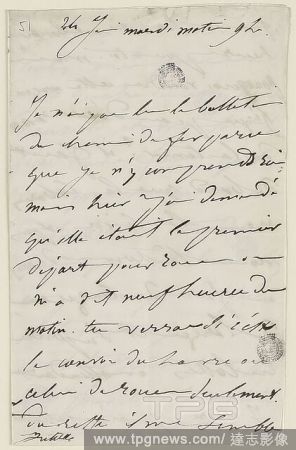 51
24 Jui mardi matin 9h.
Je n'ai pas lu le bulletin
de chemin de fer parce
que je n'y comprends rien
mais hier j'ai demandé
qu'elle était le premier
départ pour rouen on
m'a dit neuf heures du
matin. tu verras si c'est
le convoi du havre ou
celui de rouen seulement.
Du reste il me semble
TPG
www.tpgnews.com / 達志影像